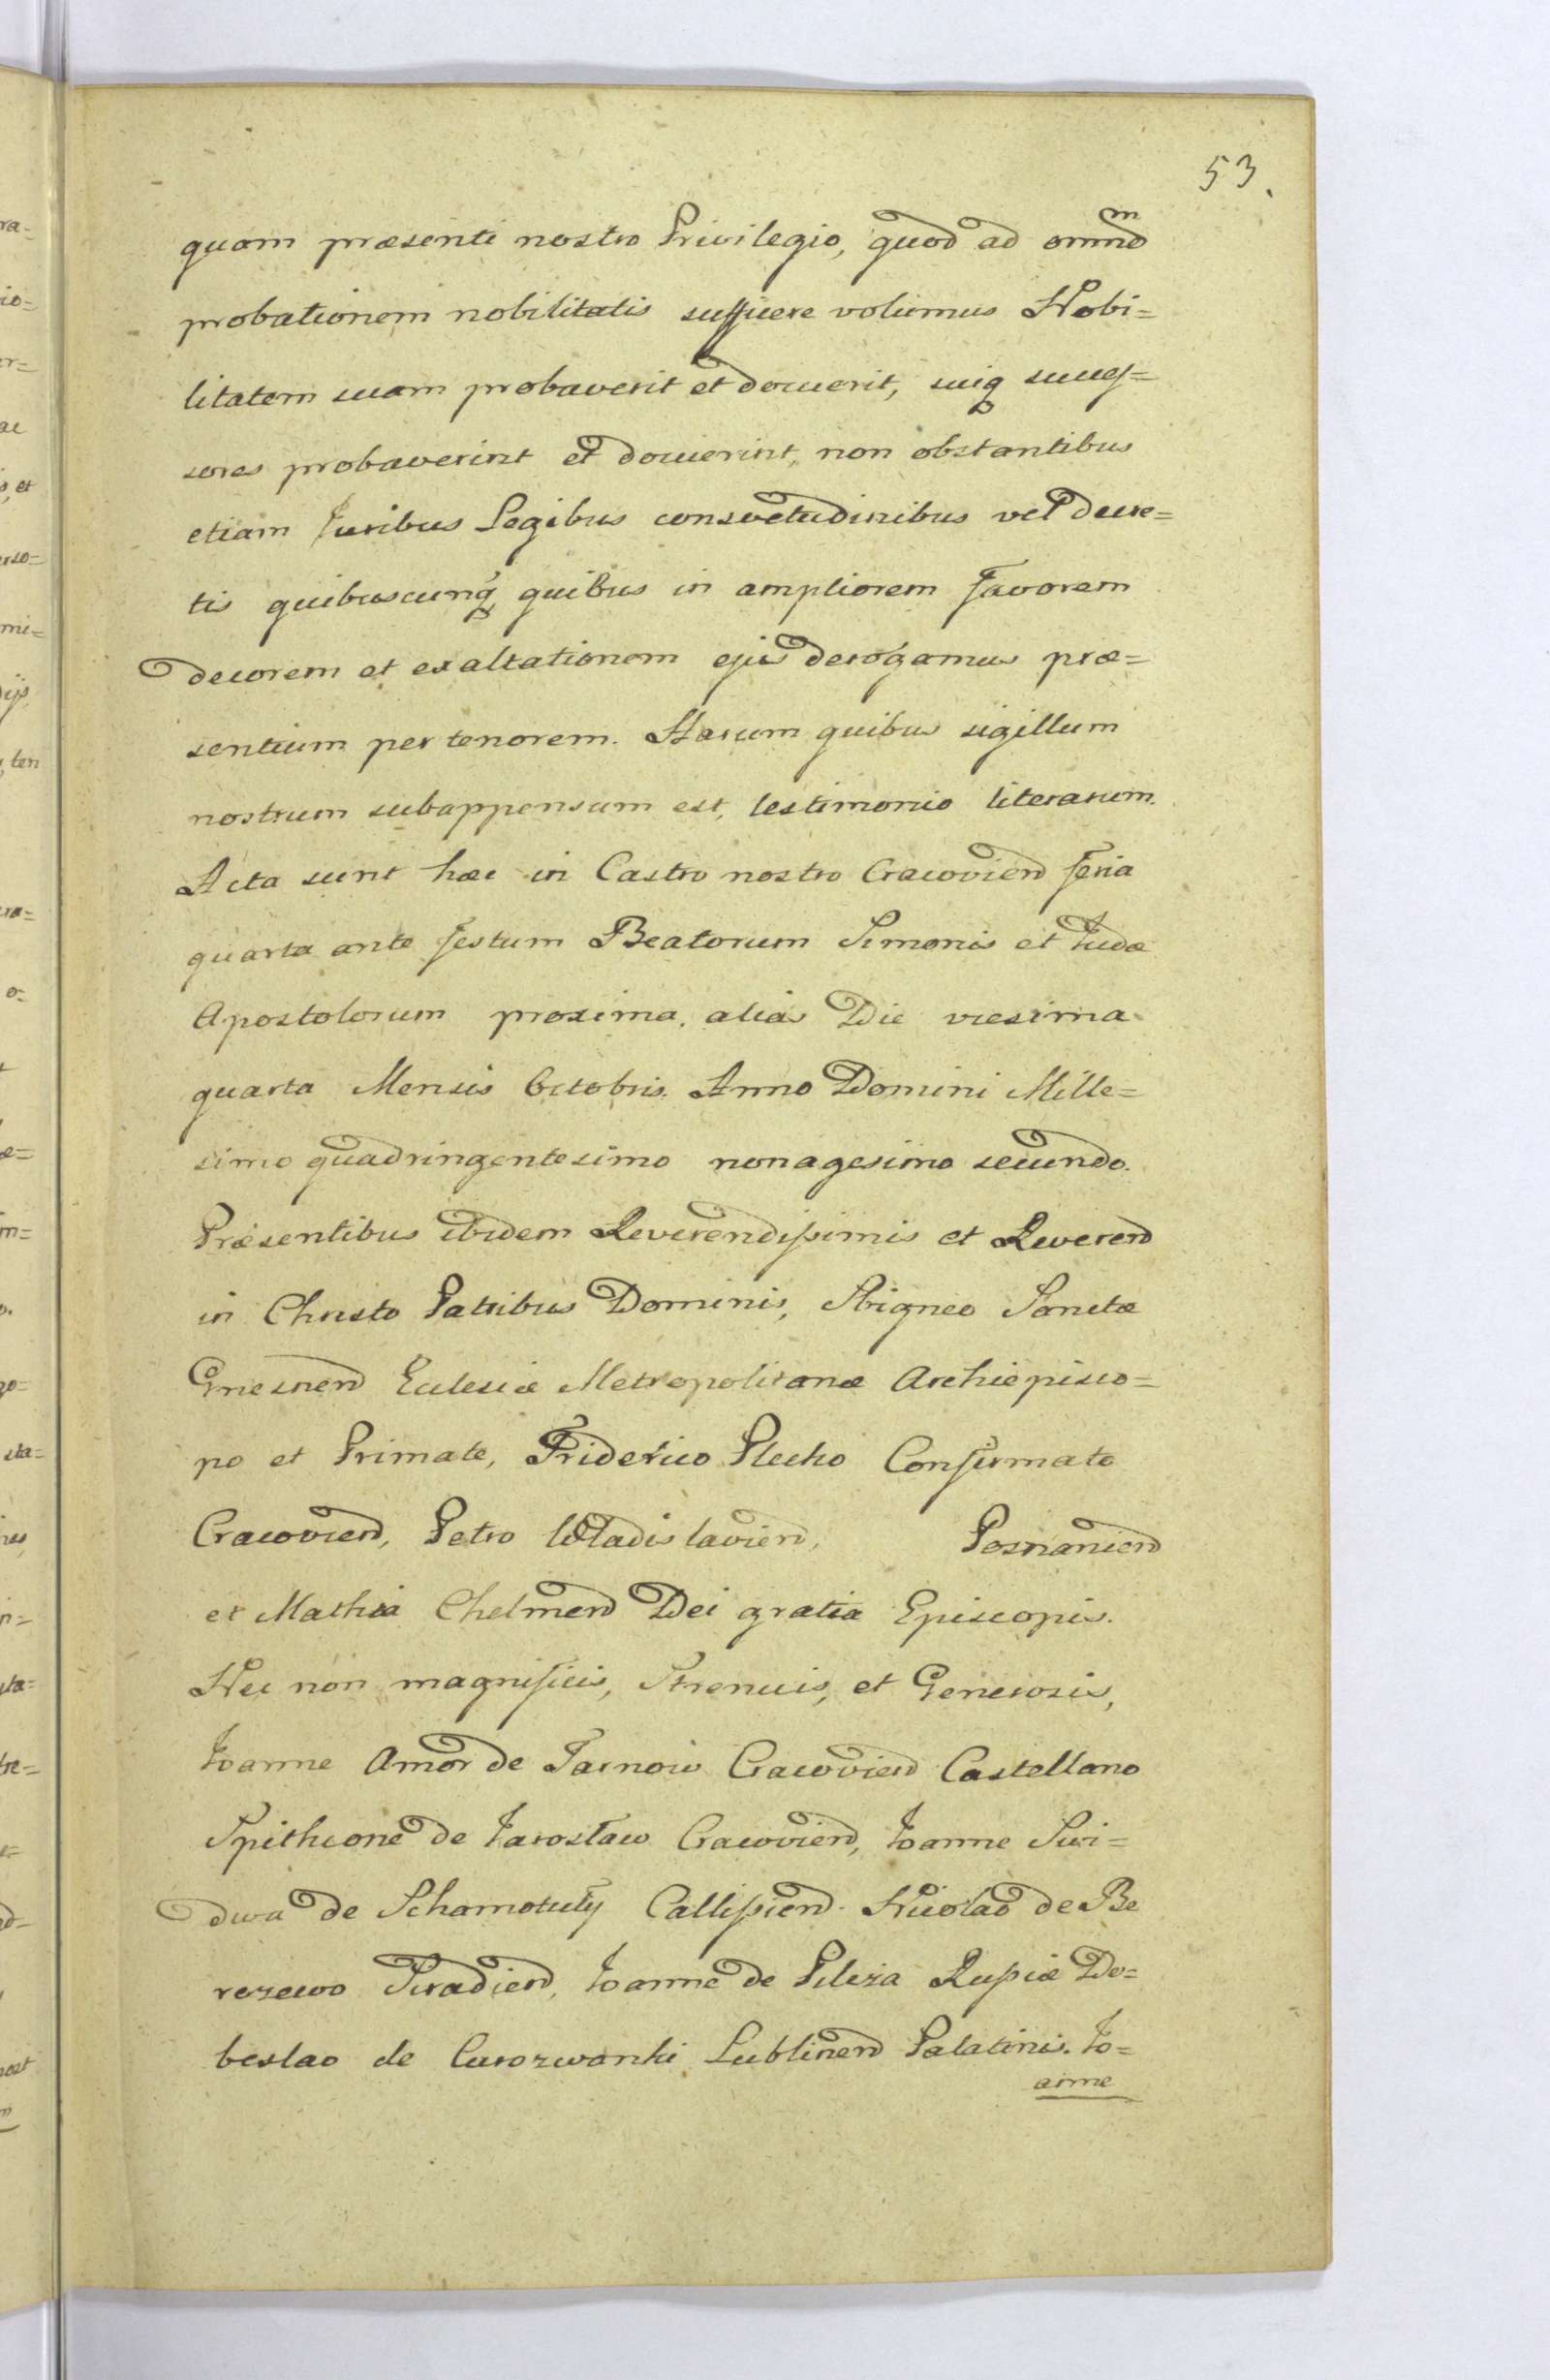 53.
quam præsenti nostro Privilegio, quod ad omnem
probationem nobilitatis sufficere volumus Nobi=
litatem suam probaverit et docuerit, suiq succes=
sores probaverint et docuerint, non obstantibus
etiam Juribus Legibus consvetudinibus vel decre=
tis quibuscunq quibus in ampliorem favorem
decorem et exaltationem ejus derogamus præ=
sentium per tenorem. Harum quibus sigillum
nostrum subappensum est, testimonio literarum.
Acta sunt hæc in Castro nostro Cracovien feria
quarta ante festum Beatorum Simonis et Judæ
Apostolorum proxima, alias Die vicesima
quarta Mensis Octobris. Anno Domini Mille=
simo quadringentesimo nonagesimo secundo.
Præsentibus ibidem Reverendissimis et Reveren
in Christo Patribus Dominis, Sbigneo Sanctæ
Gnesnen Eclesiæ Metropolitanæ Archiepisco=
po et Primate, Friderico Electo Confirmato
Cracovien, Petro Wladislavien, Posnanien
et Mathia Chelmen Dei gratia Episcopis.
Nec non magnificis, Strenuis, et Generosis,
Joanne Amor de Tarnow Cracovien Castellano
Spithcone de Jarosław Cracovien, Joanne Swi=
dwa de Schamotuly Callissien. Nicolao de Be
rezewo Siradien, Joanne de Pileza Russiæ Do=
beslao de Curozwanki Lublinen Palatinis. Jo=
anne